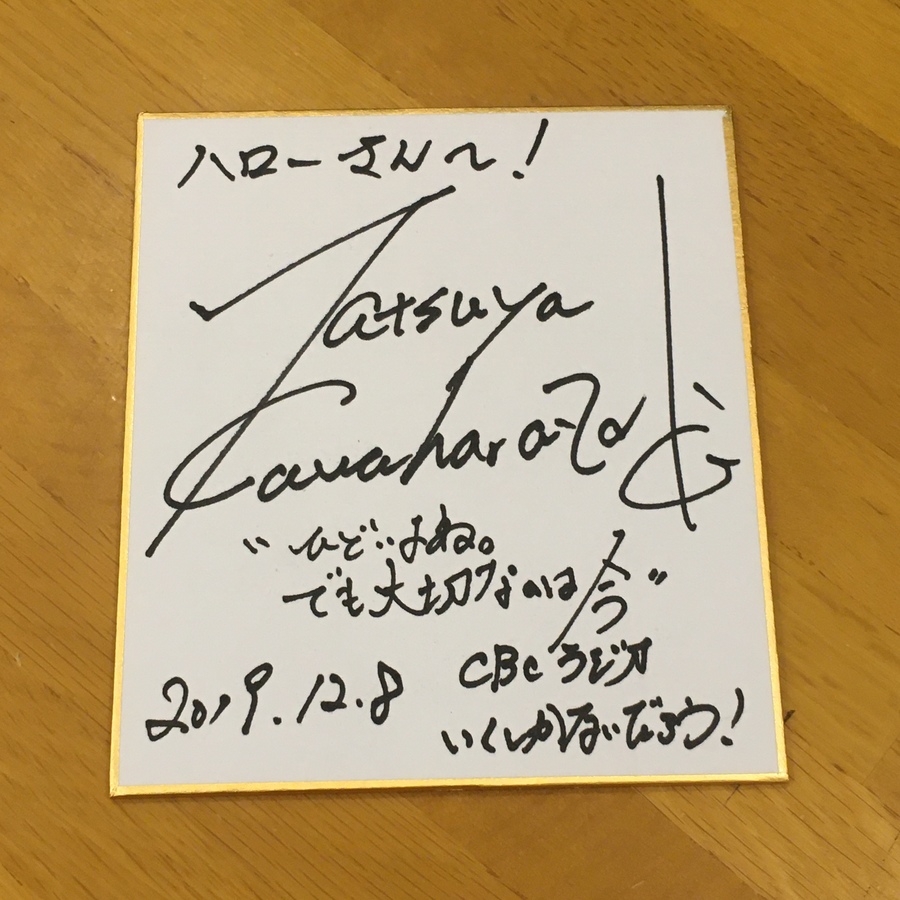 ハローさん〜!
Tatsuya
Kawaharazaki
"ひどいよね。
でも大切なのは今"
CBCラジオ
いくしかないだろう!
2019.12.8